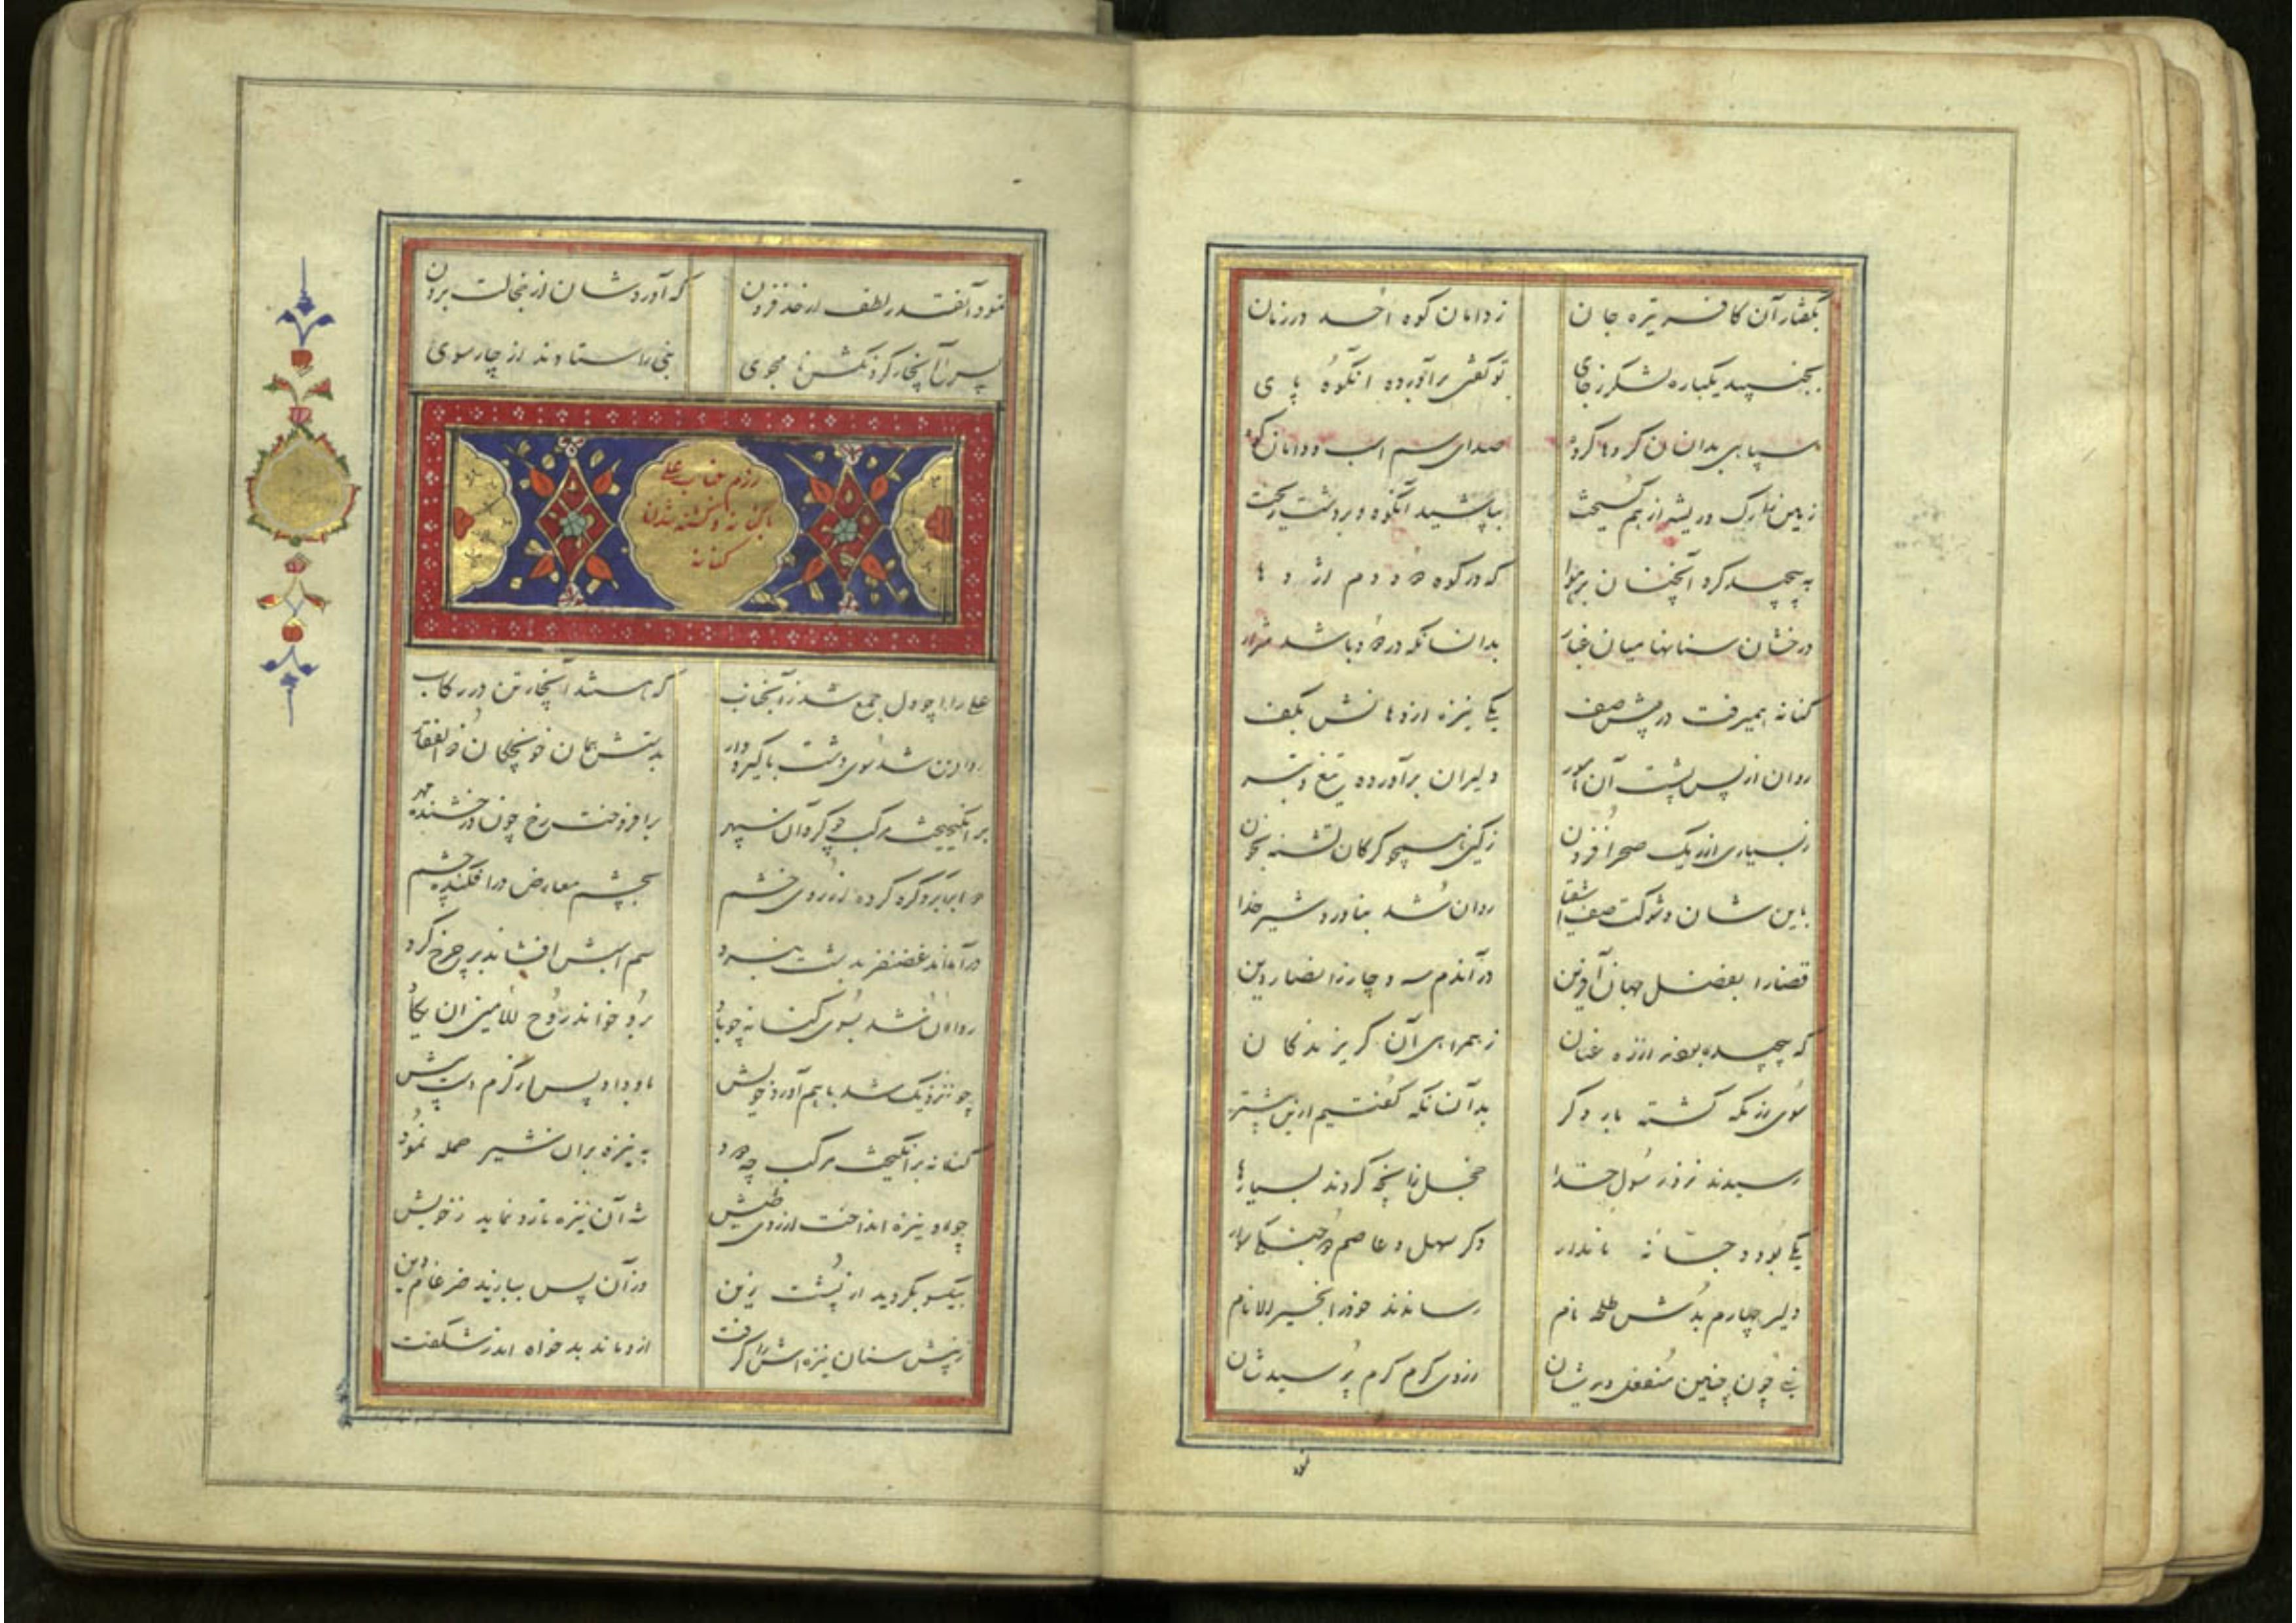 بگفتار آن کافر تیره جان زدامان کوه احد در زمان
بجنبید یکباره لشکر ز جای تو گفتی برآورده آنکوه پای
سپاهی بدانسان گروها گروه صدای سم اسب و دامان کوه
زمین را رگ و ریشه از هم گسیخت بپاشید آنکوه و بر دشت ریخت
به پیچید کرد آنچنان بر هوا که در کوه دود دم اژدها
درخشان سنانها میان غبار بدانسانکه در دود باشد شرار
کنانه همیرفت در پیش صف یکی نیزه اژدهافش بکف
روان از پس پشت آن دلیران برآورده تیغ و تبر
زبسیاری از ریک صحرا فزون زکین همچو کرکان تشنه بخون
باین شان و شوکت صف اشقیا روان شد بناورد شیر خدا
قضارا بفضل جهان آفرین در آندم سه و چار ز انصار دین
که پیچیده بودند از ره عنان ز همراهی آن کریزندکان
سوی رزمکه کشته بار دکر بدآنسانکه کفتیم ازین پیشتر
رسیدند نزد رسول خدا خجل زآنچه کردند بسیارها
یکی بود دجانه نامدار دکر سهل و عاصم دو جنکی سوار
دلیر چهارم بدش طلحه نام رساندند خود را بخیر الانام
نبی چون چنین منفعل دیدشان ز روی کرم کرم پرسیدشان
نمود
نمود آنقدر لطف از حد فزون که آوردشان از خجالت برون
پس آن چار کرد نکش نامجوی نبی را ستادند از چار سوی
رزم جناب علی
با کنانه و کشته شدن
کنانه
علی را چو دل جمع شد زآنجناب که هستند آنچار تن در رکاب
روان شد سوی دشت با کیر و دار بدستش همان خونچکان ذوالفقار
برانگیخت مرکب چو کردان سپهر برافروخت رخ چون درخشنده مهر
دو ابرو کره کرده از روی خشم بچشم معارض در افکنده چشم
درآمد غضنفر بدشت نبرد سم اسبش افشاند بر چرخ کرد
روان شد بسوی کنانه چو باد برو خواند روح الامین ان یکاد
چو نزدیک شد با هم آورد خویش باو داد پس کرم دست پیش
کنانه برانگیخت مرکب چو دود به نیزه بران شیر حمله نمود
چو او نیزه انداخت از روی طیش شه آن نیزه را رد نماید ز خویش
بیکسو بکردید از پشت زین وز آن پس بیازید ضرغام دین
زپیش سنان نیزه اش را کرفت ازو ماند بدخواه اندر شکفت